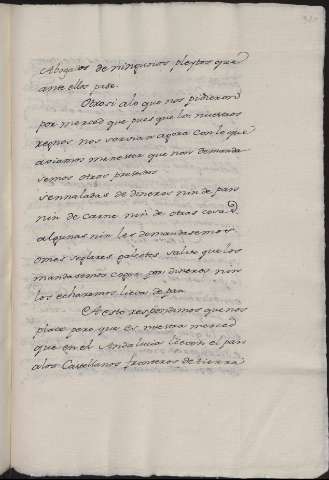 Abogados de ningunos pleytos que
ante ellos pase.
Otrosi a lo que nos pidieron
por merced que pues que los nuestros
regnos nos servian agora con lo que
aviamos menester que non demanda
semos otros pechos
sennaladas de dineros nin de pan
nin de carne nin de otras cosas
algunas nin les demandasemos
omes seglares galeotes salvo que los
mandasemos coger por dineros nin
los echaramos lieva de pan
A esto respondemos que nos
place pero que es nuestra merced
que en el Andalucia lieven el pan
a los Castellanos fronteros de tierra